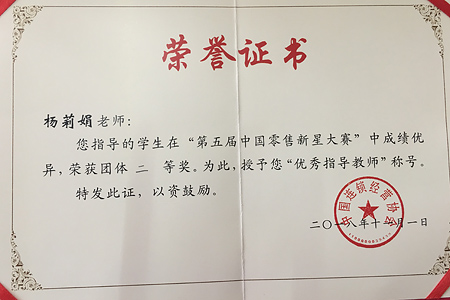 荣誉证书
杨莉娟老师：
您指导的学生在“第五届中国零售新星大赛”中成绩优
异，荣获团体 二 等奖。为此，授予您“优秀指导教师”称号。
特发此证，以资鼓励。
中国连锁经营协会
二〇一八年十一月一日